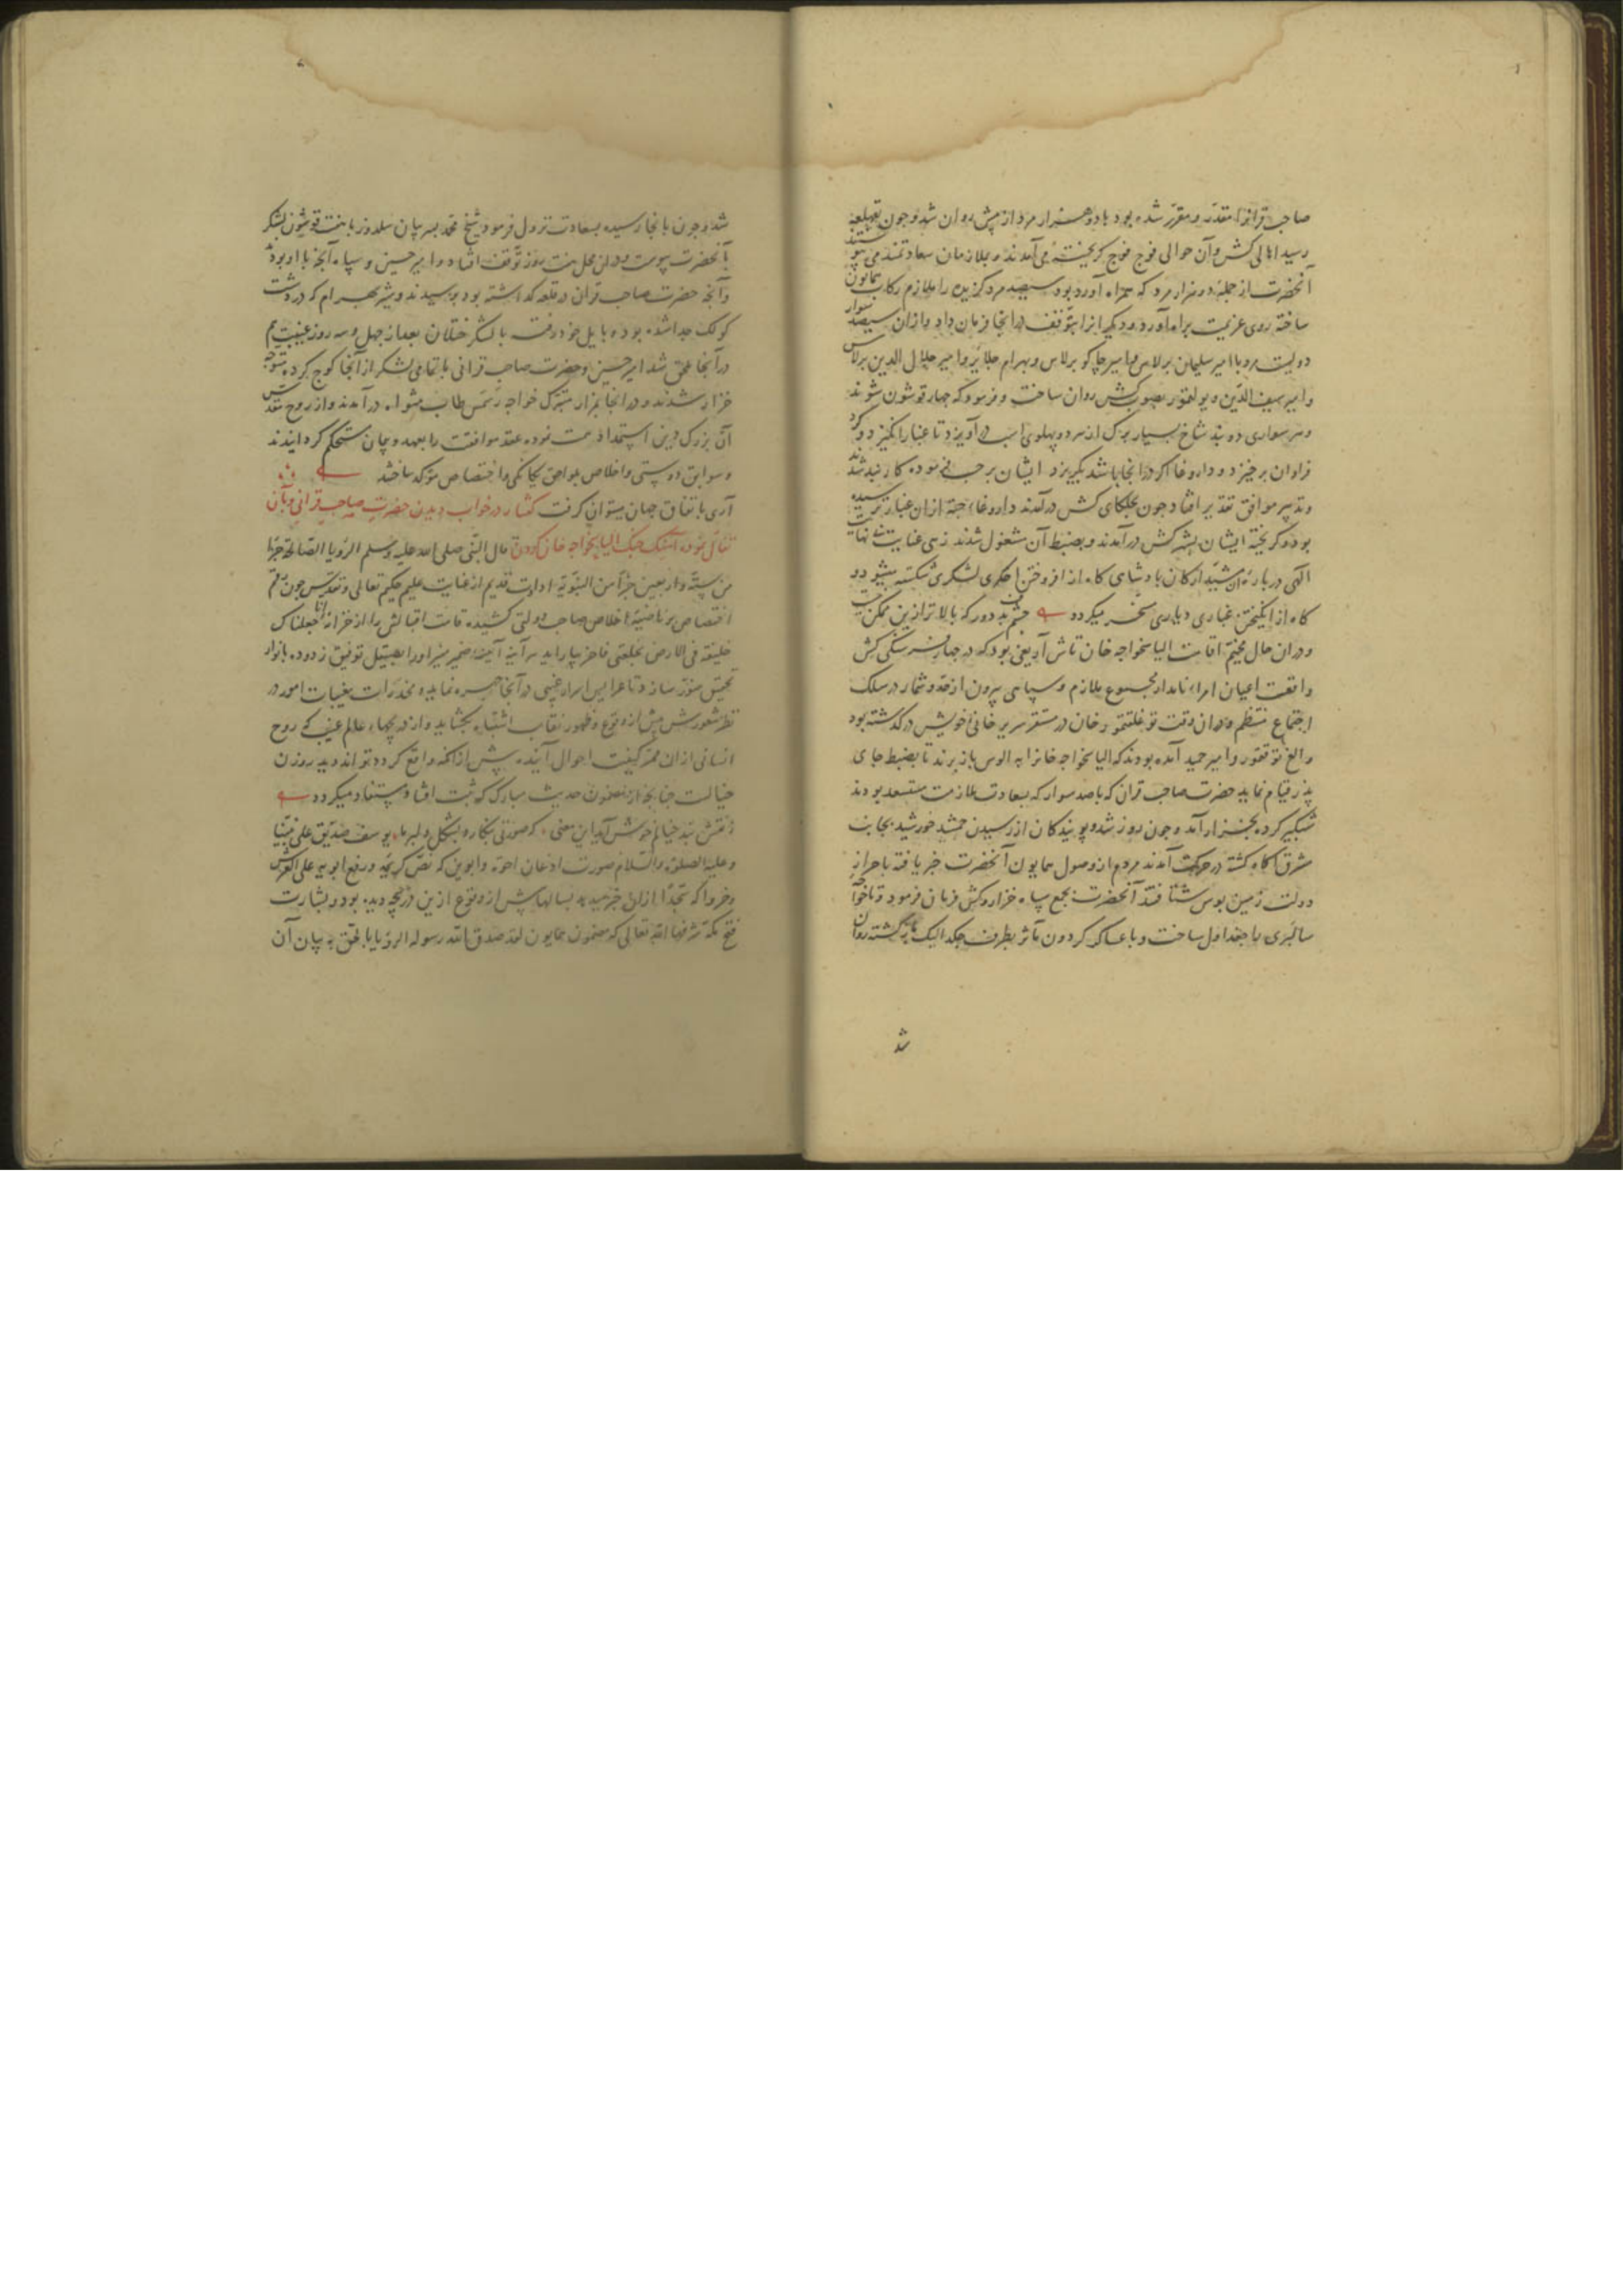 صاحب قرانرا مقدّر و مقرّر شده بود با دو هزار مرد از پیش روان شد و چون بقهلغه
رسید اهالی کش و آن حوالی فوج فوج گریخته می‌آمدند و بملازمان سعادتمند می پیوستند
آنحضرت از جمله دو هزار مرد که همراه آورده بود سیصد مرد گزیده را ملازم رکاب همایون
ساخته روی عزیمت براه آورد و دیگرانرا بتوقف در انجا فرمان داد و ازان سیصد سوار
دویست مرد با امیر سلیمان برلاس و امیر چاکو برلاس و بهرام جلایر و امیر جلال الدین برلاس
و امیر سیف الدّین و یولتمور بصوب کش روان ساخت و فرمود که چهار قوشون شوند
و هر سواری دو بند شاخ بسیار برگ از هر دو پهلوی اسب در آویزد تا غبار انگیزد و گرد
فراوان برخیزد و داروغا اگر در انجا باشد بگریزد ایشان بر حسب فرموده کاربند شدند
و تدبیر موافق تقدیر افتاد چون بجلگای کش در آمدند داروغاء جته ازان غبار ترسیده
بود و گریخته ایشان بشهر کش در آمدند و بضبط آن مشغول شدند زهی عنایت بی نهایت
الهی در باره آن مشیّد ارکان پادشاهی گاه از افروختن اخگری لشکری شکسته میشود و
گاه از انگیختن غباری دیاری مسخر میگردد چشم بد دور که بالاتر ازین ممکن نیست
و در ان حال مخیّم اقامت الیاسخواجه خان تاش آریغی بود که در چهار فرسنگی کش
واقعست اعیان امراء نامدار مجموع ملازم و سپاهی بیرون از حدّ و شمار در سلک
اجتماع منتظم و در ان وقت توغلتمور خان در مستقر سریر خانی خویش درگذشته بود
و الغ توقتمور و امیر حمید آمده بودند که الیاسخواجه خانرا به الوس باز برند تا بضبط جای
پدر قیام نماید حضرت صاحب قران که با صد سوار که بسعادت ملازمت مستسعد بودند
شبگیر کرده بخزار آمد و چون روز شد و پویندگان از رسیدن جمشید خورشید بجانب
مشرق آگاه گشته در حرکت آمدند مردم از وصول همایون آنحضرت خبر یافته باحراز
دولت زمین بوس شتافتند آنحضرت بجمع سپاه خزار و کش فرمان فرمود و تا خواجه
سالبری با جغداول ساخت و با عساکر گردون مآثر بطرف چکدالیک باز گشته روان
شد
شد و چون بانجا رسید بسعادت نزول فرمود شیخ محمّد پسر بیان سلدوز با هفت قوشون لشکر
بآنحضرت پیوست و در ان محل هفت روز توقف افتاد و امیر حسین و سپاه آنچه با او بود
و آنچه حضرت صاحب قران در قلعه گذاشته بود برسیدند و شیر بهرام که در دشت
کولک جدا شده بود و بایل خود رفته با لشکر ختلان بعد از چهل و سه روز غیبت هم
در آنجا ملحق شد امیر حسین و حضرت صاحب قرانی با تمامی لشکر از آنجا کوچ کرده متوجّه
خزار شدند و در انجا بمزار متبرّک خواجه شمس طاب مثواه در آمدند و از روح مقدس
آن بزرگ دین استمداد همت نموده عقد موافقت را بعهد و پیمان مستحکم گردانیدند
و سوابق دوستی و اخلاص بلواحق یگانگی و اختصاص موکد ساختند
آری باتفاق جهان میتوان گرفت گفتار در خواب دیدن حضرت صاحب قرانی و بآن
تفأل نموده آهنگ جنگ الیاسخواجه خان کردن قال النّبی صلی الله علیه و سلم الرّویا الصّالحة جزء
من ستّة و اربعین جزأ من النبوّة ارادت قدیم از عنایت علیم حکیم تعالی و تقدّس چون رقم
اختصاص بر ناصیهٔ اخلاص صاحب دولتی کشیده قامت اقبالش را از خزانه انا جعلناک
خلیفة فی الارض بخلعتی فاخر بیاراید هر آینه آئینهٔ ضمیر منیر او را بصیقل توفیق زدوده بانوار
تحقیق منوّر سازد تا عرایس اسرار غیبی در آنجا چهره نماید و مخدّرات مغیبات امور در
نظر شعورش پیش از وقوع و ظهور نقاب اشتباه بگشاید و از دریچهاء عالم غیب که روح
انسانی از ان ممر کیفیت احوال آینده پیش از آنکه واقع گردد تواند دید روزن
خیالست چنانچه از مضمون حدیث مبارک که ثبت افتاد مستفاد میگردد
ز نقش بند خیالم خوش آید این معنی که صورتی بنگارد بشکل دلبر ما یوسف صدّیق علی نبیّنا
و علیه الصلوة و السّلام صورت اذعان اخوه و ابوین که نصّ کریمه و رفع ابویه علی العرش
و خروا له سجّدا ازان خبر میدهد بسالها پیش از وقوع ازین دریچه دیده بود و بشارت
فتح مکه شرفها الله تعالی که مضمون همایون لقد صدق الله رسوله الرویا بالحقّ به بیان آن